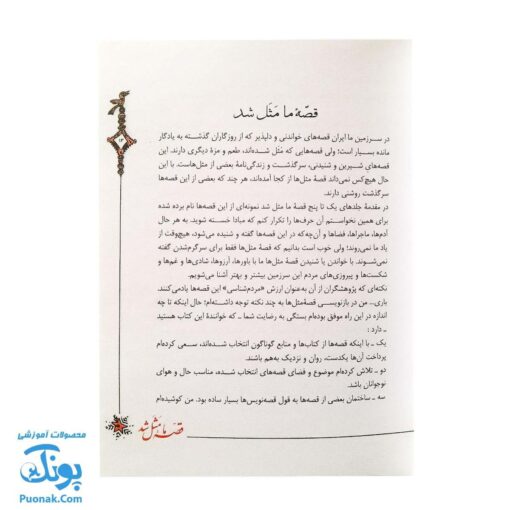 قصّهٔ ما مَثَل شد
در سرزمین ما ایران قصه‌های خواندنی و دلپذیر که از روزگاران گذشته به یادگار
مانده بسیار است؛ ولی قصه‌هایی که مَثَل شده‌اند، طعم و مزهٔ دیگری دارند. این
قصه‌های شیرین و شنیدنی، سرگذشت و زندگی‌نامهٔ بعضی از مثل‌هاست. با این
حال هیچ‌کس نمی‌داند قصهٔ مثل‌ها از کجا آمده‌اند، هر چند که بعضی از این قصه‌ها
سرگذشت روشنی دارند.
در مقدمهٔ جلدهای یک تا پنج قصهٔ ما مثل شد نمونه‌ای از این قصه‌ها نام برده شده
برای همین نخواستم آن حرف‌ها را تکرار کنم که مبادا خسته شوید. به هر حال
آدم‌ها، ماجراها، فضاها و آن‌چه‌که در این قصه‌ها گفته و شنیده می‌شود، هیچ‌وقت از
یاد ما نمی‌روند؛ ولی خوب است بدانیم که قصهٔ مثل‌ها فقط برای سرگرم‌شدن گفته
نمی‌شوند. با خواندن یا شنیدن قصهٔ مثل‌ها ما با باورها، آرزوها، شادی‌ها و غم‌ها و
شکست‌ها و پیروزی‌های مردم این سرزمین بیشتر و بهتر آشنا می‌شویم.
نکته‌ای که پژوهشگران از آن به‌عنوان ارزش «مردم‌شناسی» این قصه‌ها یادمی‌کنند.
باری... من در بازنویسی قصهٔ‌مثل‌ها به چند نکته توجه داشته‌ام؛ حال اینکه تا چه
اندازه در این راه موفق بوده‌ام بستگی به رضایت شما ـ که خوانندهٔ این کتاب هستید
ـ دارد :
یک ـ با اینکه قصه‌ها از کتاب‌ها و منابع گوناگون انتخاب شده‌اند، سعی کرده‌ام
پرداخت آن‌ها یکدست، روان و نزدیک به‌هم باشند.
دو ـ تلاش کرده‌ام موضوع و فضای قصه‌های انتخاب شده، مناسب حال و هوای
نوجوانان باشد.
سه ـ ساختمان بعضی از قصه‌ها به قول قصه‌نویس‌ها بسیار ساده بود. من کوشیده‌ام
قصهٔ ما مَثَل شد
محصولات آموزشی
پونک
Puonak.Com